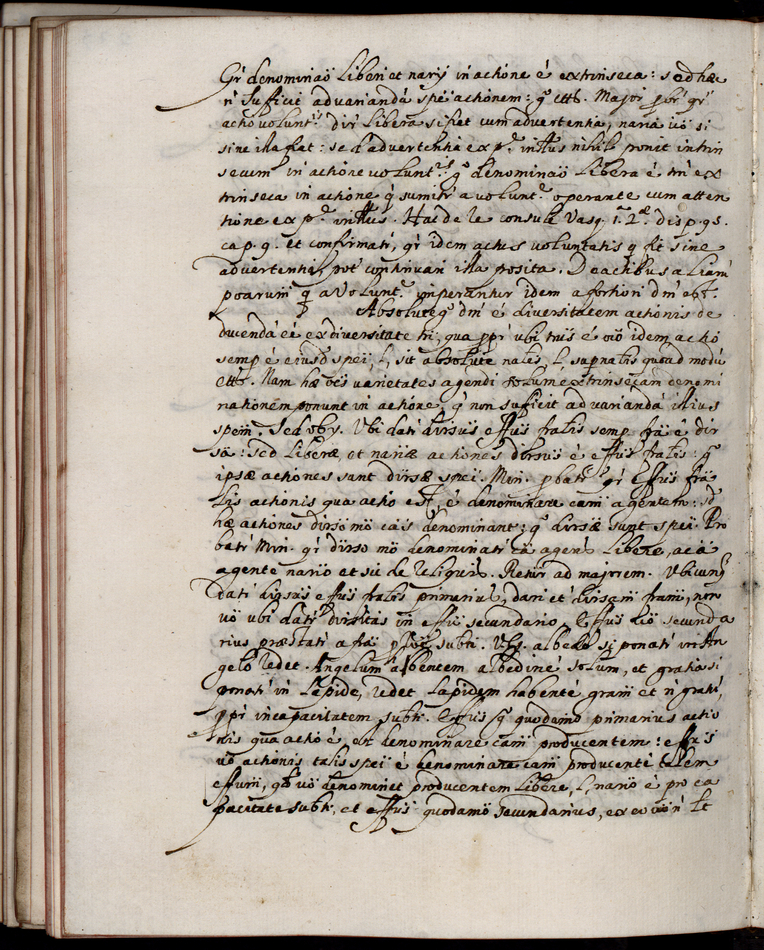 Gr' denominaõ Liberi et narij in actione ẽ extrinseca: sed hæc
n' Sufficit ad variandã spẽi actionem: gº etts. Major pbr' qr'
actio volunt.ˢ dir' Libera si fiet cum advertentia, naria uõ si
sine illa fiat: sed advertentia ex p.ᵉ intus nihil ponit intrin
secum in actione volunt.ⁱˢ gº denominaõ Libera ẽ tm' ex
trinseca in actione q' sumit' a volunt.ᵉ operante cum atten
tione ex p.ᵉ intus. Hac de re consule Vasq. 1.ª 2.æ disp. 95.
cap. 9. et confirmati, qr' idem actus voluntatis q fit sine
advertentia, pot' continuari illa posita. De actibus aliarũ
poarum q a Volunt.ᵉ imperantur idem a fortiori dm' est.
Absolute gº dm' ẽ diversitatem actionis de
ducenda eẽ ex diversitate tri, qua ppr' ubi tnus ẽ uõ idem actio
semp ẽ ejusd' spẽi, l, sit absolute nalis, l. supnalis quoad modũ
etts. Nam hæ oẽs varietates agendi solum extrinsecam denomi
nationem ponunt in actione, q' non sufficit ad variandã illius
spẽm. Sed oby. Ubi dati dirsus effus fralis semp fra ẽ dir
sa: sed Liberæ, et nariæ actiones dirsus ẽ effus fralis: gº
ipsæ actiones sunt dirsæ spẽi. Min. pbatr' qr' Effus fra
lis actionis qua actio est, ẽ denominare cam' agentem: sd'
hæ actiones dirso mõ cais denominant; gº dirsæ sunt spẽi. Pro
bati Min. qr' dirso mõ denominati cã agens Libere, ac a
agente nario et sic de reliquis. Retur ad majorem. Ubicunq
dati dirsus effus fralis primarius, dari et dirsam fram, non
uõ ubi dati dirsitas in effu secundario. Effus uõ secunda
rius præstati a fra p subti. V.g. albedo si ponati in An
gelo redet Angelum albentem albedine solum, et gratia si
ponati in Lapide, redet Lapidem habentẽ gram et n' grati,
ppr' incapacitatem subti. Effus gº quodamõ primarius actio
nis qua actio ẽ est denominare cam' producentem: effus
uõ actionis talis spẽi ẽ denominare cam' producentẽ talem
effum, qd' uõ denominet producentem Libere, l, nario ẽ pro ca
pacitate subti, et effus quodamõ secundarius, ex eo uõ n' Lt